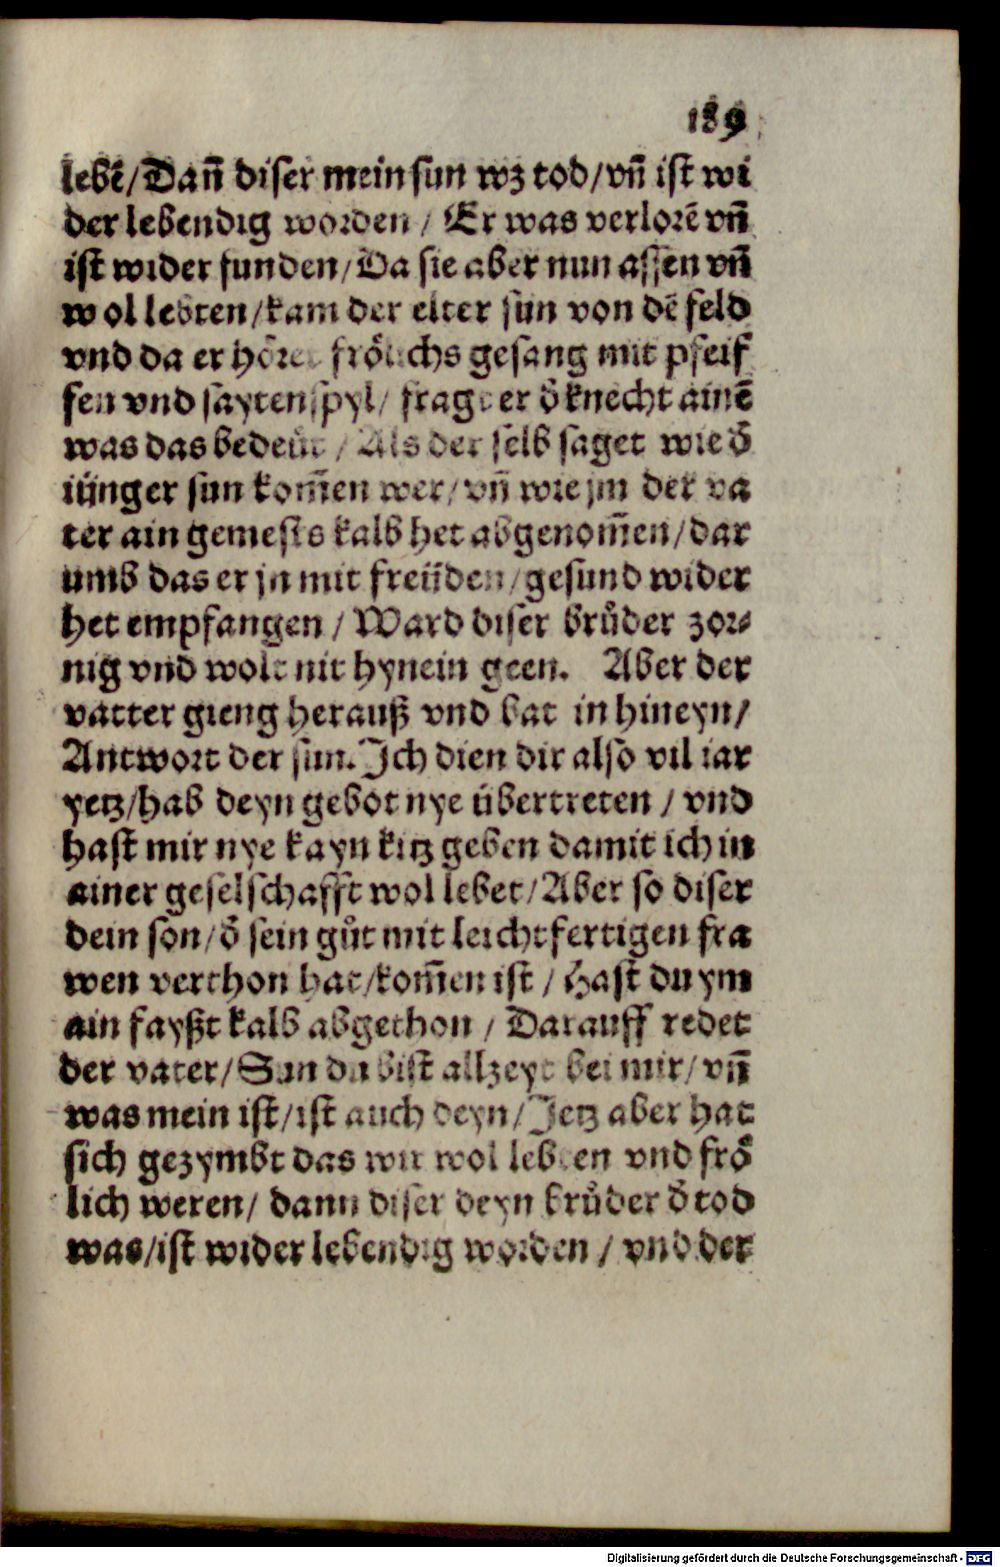 189
lebē/Dan̄ diser mein sun wz tod/vn̄ ist wi
der lebendig worden / Er was verlorē vn̄
ist wider funden/Da sie aber nun assen vn̄
wol lebten/kam der elter sun von dē feld
vnd da er höret frölichs gesang mit pfeif
fen vnd saytenspyl/ fraget er d̄ knecht ainē
was das bedeüt / Als der selb saget wie d̄
iünger sun kom̄en wer/vn̄ wie jm der va
ter ain gemests kalb het abgenom̄en/dar
umb das er jn mit freüden/gesund wider
het empfangen / Ward diser brůder zor⸗
nig vnd wolt nit hynein geen. Aber der
vatter gieng herauß vnd bat in hineyn/
Antwort der sun. Ich dien dir also vil iar
yetz/hab deyn gebot nye übertreten / vnd
hast mir nye kayn kitz geben damit ich in
ainer geselschafft wol lebet/Aber so diser
dein son/d̄ sein gůt mit leichtfertigen fra
wen verthon hat/kom̄en ist / Hast du ym
ain fayßt kalb abgethon / Darauff redet
der vater/Sun du bist allzeyt bei mir/ vn̄
was mein ist/ist auch deyn/Jetz aber hat
sich gezymbt das wir wol lebten vnd frö
lich weren/ dann diser deyn brůder d̄ tod
was/ist wider lebendig worden / vnd der
Digitalisierung gefördert durch die Deutsche Forschungsgemeinschaft - DFG